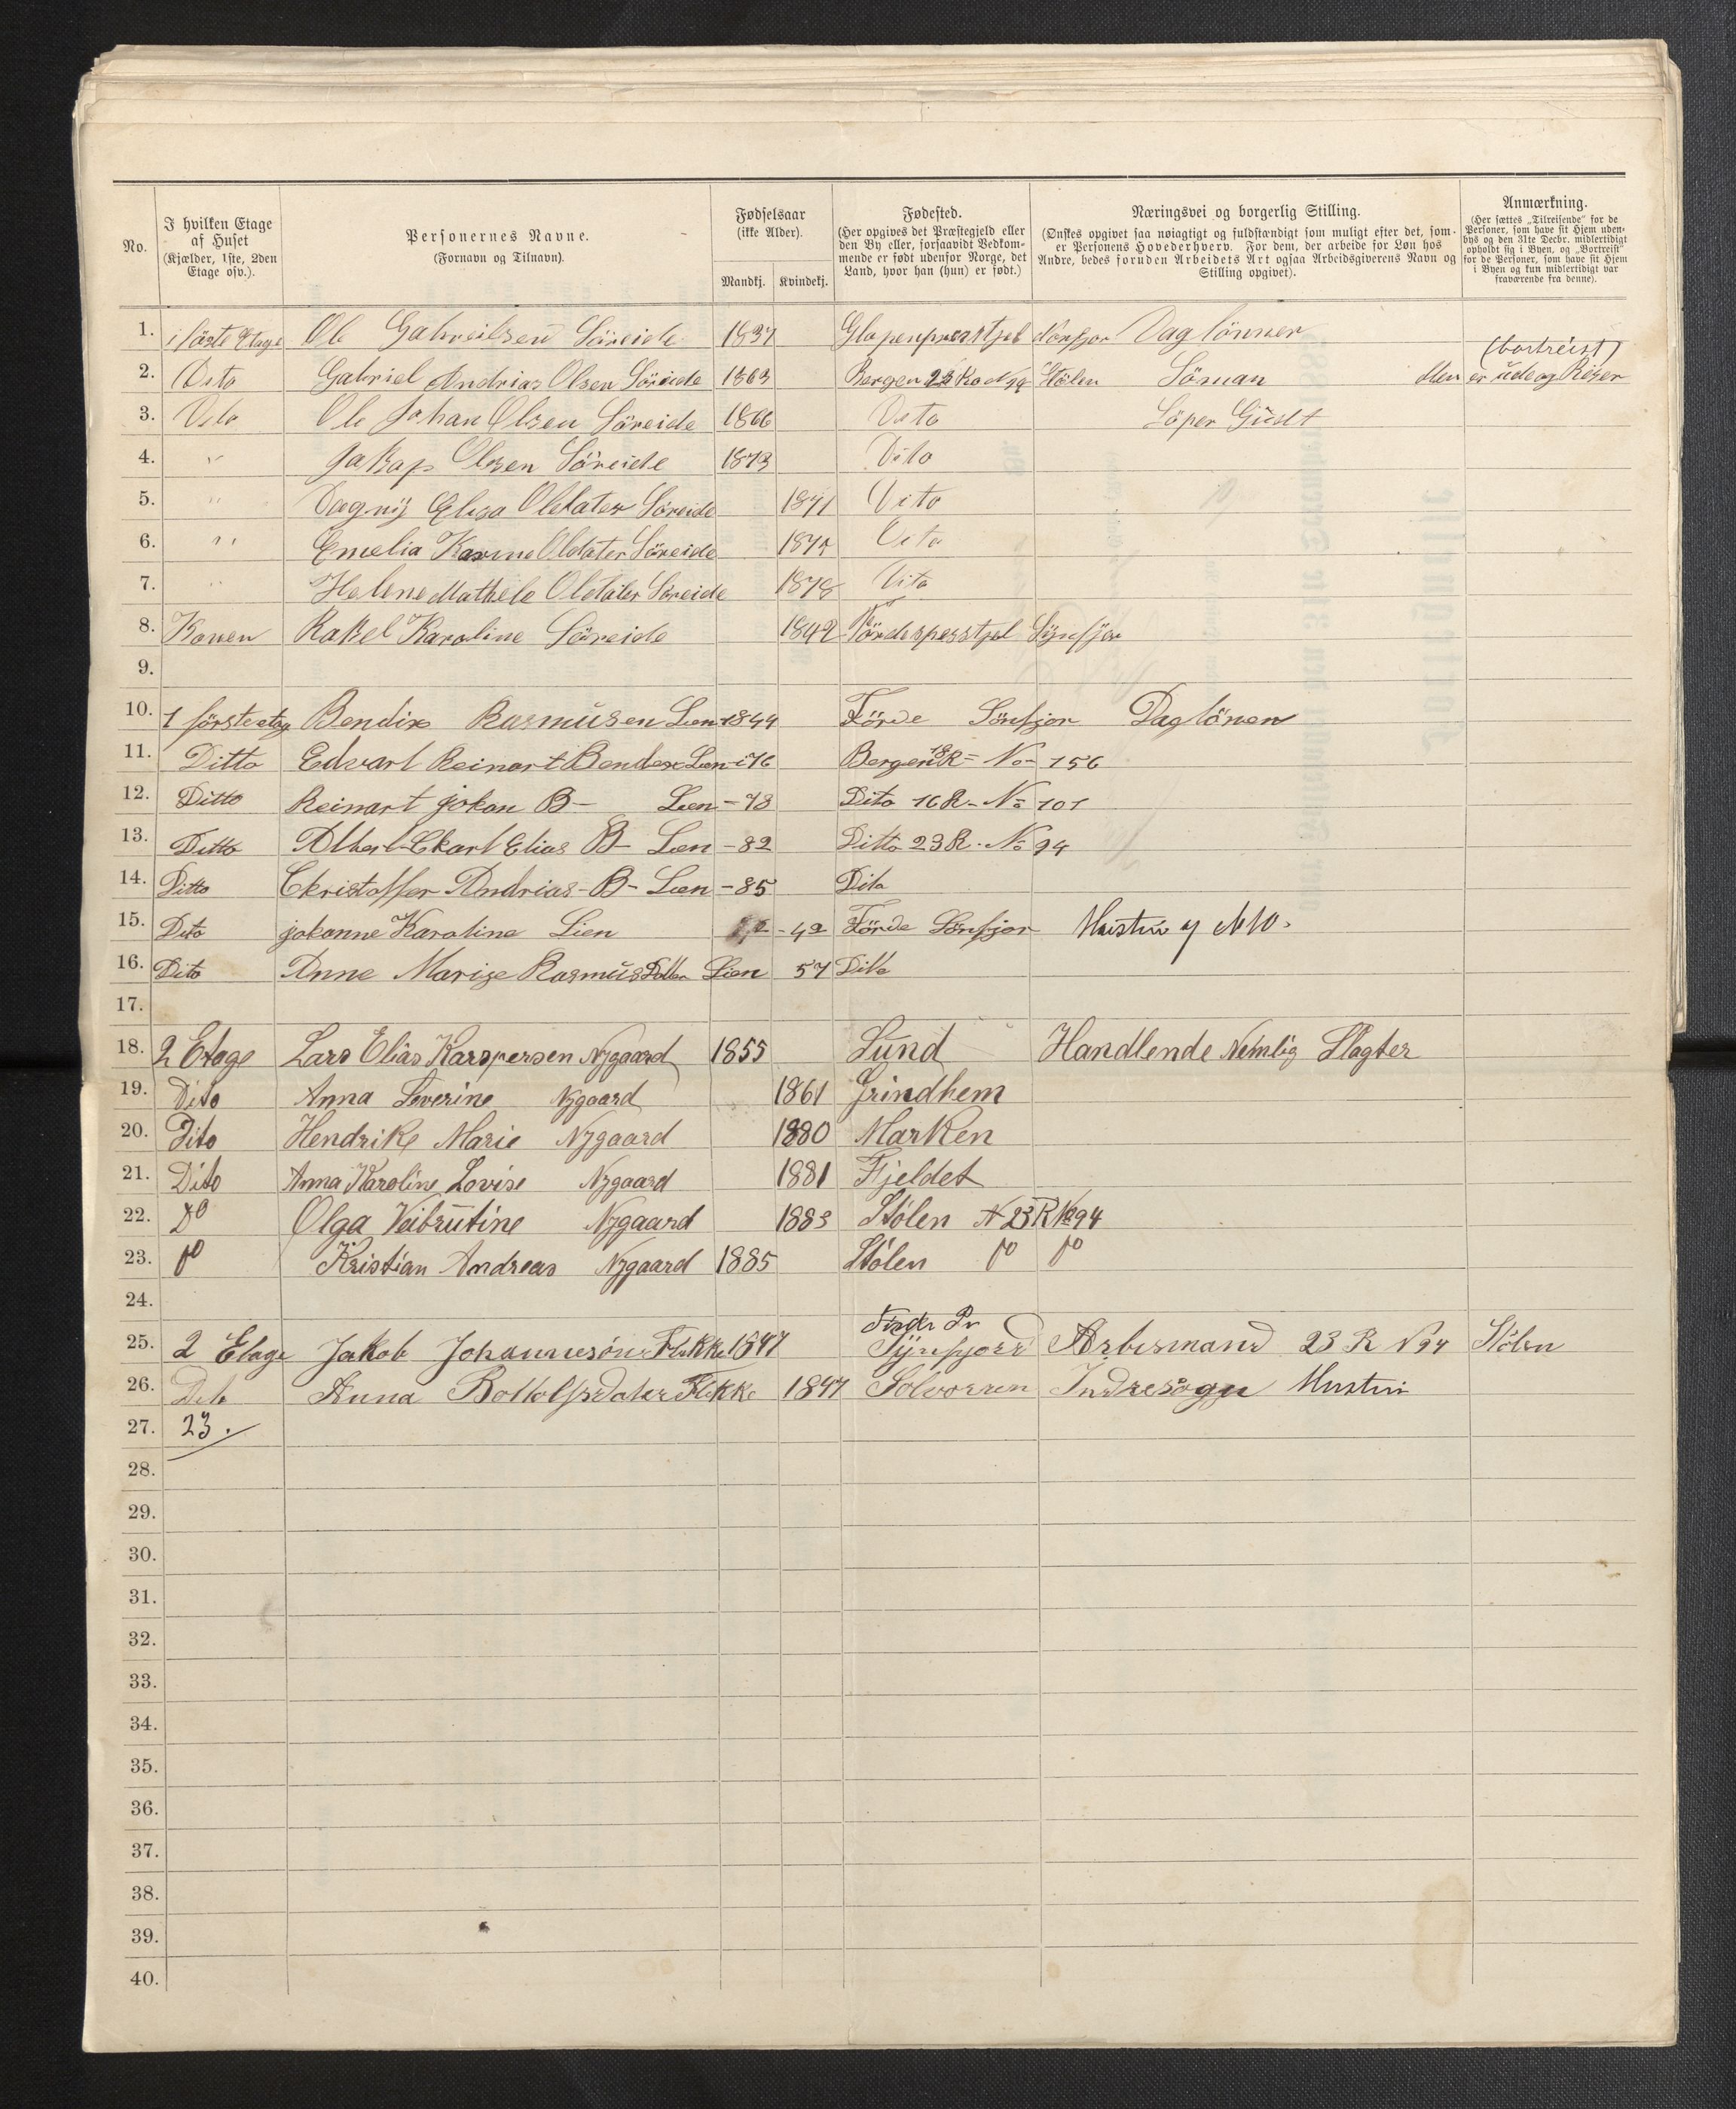 No.
I hvilken Etage
af Huset
(Kjælder, 1ste, 2den
Etage osv.).
Personernes Navne.
(Fornavn og Tilnavn).
Fødselsaar
(ikke Alder).
Mandkj. Kvindekj.
Fødested.
(Her opgives det Præstegjeld eller
den By eller, forsaavidt Vedkom-
mende er født udenfor Norge, det
Land, hvor han (hun) er født.)
Næringsvei og borgerlig Stilling.
(Ønskes opgivet saa nøiagtigt og fuldstændigt som muligt efter det, som
er Personens Hovederhverv. For dem, der arbeide for Løn hos
Andre, bedes foruden Arbeidets Art ogsaa Arbeidsgiverens Navn og
Stilling opgivet).
Anmærkning.
(Her sættes „Tilreisende“ for de
Personer, som have sit Hjem uden-
bys og den 31te Decbr. midlertidigt
opholdt sig i Byen, og „Bortreist“
for de Personer, som have sit Hjem
i Byen og kun midlertidigt var
fraværende fra denne).
1. i föste Etage Ole Gabreilsen Söreide 1837 Glopenprestjel Norfjor Daglönner
(bortreist)
2. Dito Gabriel Andrias Olsen Söreide 1863 Bergen 23 Ro No 94 Stölen Söman Men er ude og Reiser
3. Dito Ole Johan Olsen Söreide 1866 Dito Löper Gudt
4. " Jakap Olsen Söreide 1873 Dito
5. " Dagny Elisa Oldater Söreide 1871 Dito
6. " Emelia Karine Oldater Söreide 1875 Dito
7. " Helene Mathele Oldater Söreide 1878 Dito
8. Konen Rakel Karoline Söreide 1842 Fördespresstjel Synfjor
9.
10. 1 förste etag Bendix Rasmusen Lien 1844 Förde Sönfjor Daglönen
11. Ditto Edvart Reinart Bendex Lien - 76 Bergen 18 R= No- 156
12. Ditto Reinart Johan B- Lien - 78 Dito 16 R- No 101
13. Ditto Albert Ekart Elias B- Lien - 82 Ditto 23 R. No 94
14. Ditto Christoffer Andrias - B- Lien - 85 Dito
15. Dito Johanne Karoline Lien - 42 Förde Sönfjor Hustru af No 10.
16. Dito Anne Marige Rasmusdatter Lien 57 Dito
17.
18. 2 Etage Lars Elias Karspersen Nygaard 1855 Lund Handlende Nemlig Slagter
19. Dito Anna Severine Nygaard 1861 Grindhem
20. Dito Hendrike Marie Nygaard 1880 Marken
21. Dito Anna Karoline Lovise Nygaard 1881 Fjeldet
22. Do Olga Veibrutine Nygaard 1883 Stølen N 23 R No 94
23. Do Kristian Andreas Nygaard 1885 Stølen Do Do
24.
Förde Pr
25. 2 Etage Jakob Johannesön Flekke 1847 Synfjord Arbesmand 23 R N 94 Stölen
26. Dito Anna Bottolfsdater Flekke 1847 Solvorren Indresogn Hustru
27. 23.
28.
29.
30.
31.
32.
33.
34.
35.
36.
37.
38.
39.
40.